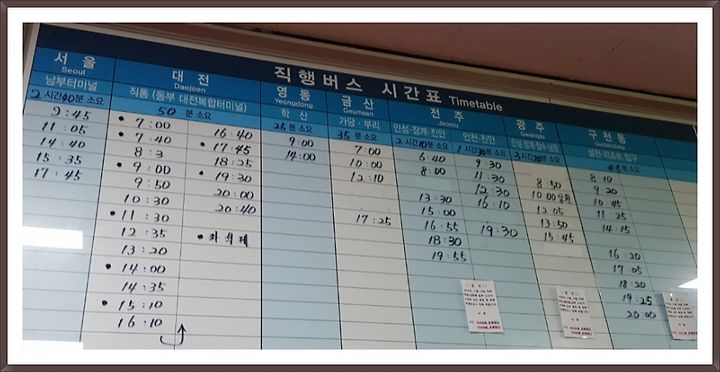 직행버스 시간표 Timetable
서울
Seoul
남부터미널
2시간40분 소요
9:45
11:05
14:40
15:35
17:45
대전
Daejoen
직통 (동부 대전복합터미널)
50 분 소요
• 7:00
• 7:40
8:3
• 9:00
9:50
10:30
• 11:30
12:35
13:20
• 14:00
14:35
• 15:10
16:10
16:40
• 17:45
18:25
• 19:30
20:00
20:40
• 좌석제
영동
Yeongdong
학산
25분 소요
9:00
14:00
금산
Geumsan
가당·부리
35분 소요
7:00
10:00
12:10
17:25
전주
Jeonju
안성·장계·진안
2시간10분 소요
6:40
8:00
13:30
15:00
16:55
18:30
19:55
안천·진안
1시간30분 소요
9:30
11:30
12:30
16:10
19:30
광주
3시간20분 소요
8:50
10:00
12:05
13:50
15:45
구천동
설천·리조트 입구
45분 소요
8:10
9:20
10:45
11:25
14:15
16:20
17:05
18:20
19:25
20:00